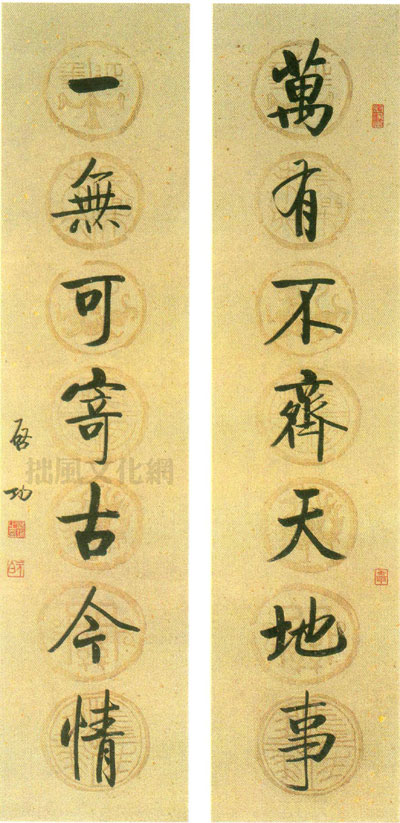 萬有不齊天地事
一無可寄古今情
啓功
拙風文化網